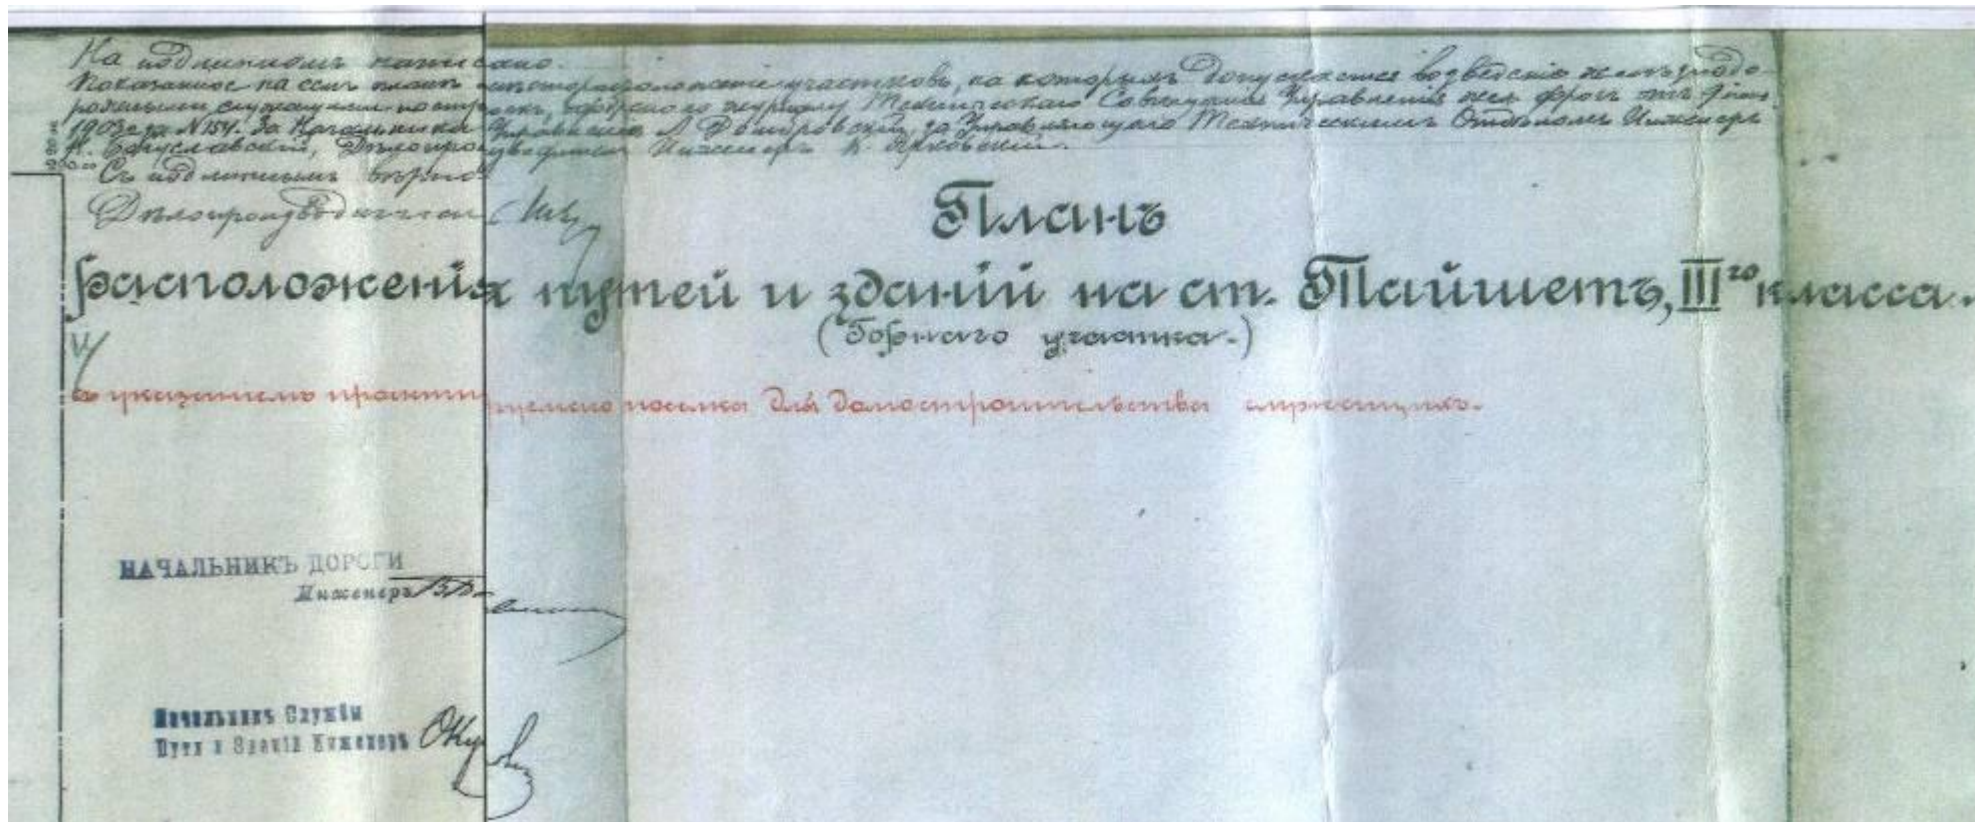 На подлинномъ написано.
Показанное на семъ планѣ участковъ, на которыхъ допускается возведеніе желѣзнодо-
рожными служащими построекъ, журналу Техническаго Совѣщанія Управленія жел. дорог. отъ
1903 года №154. За Начальника Управленія Л Домбровскій, за Управляющаго Техническимъ Отдѣломъ Инженеръ
Богуславскій, Дѣлопроизводитель Инженеръ К.
Съ подлиннымъ вѣрно:
Дѣлопроизводитель
Планъ
расположенія путей и зданій на ст. Тайшетъ, IIIго класса.
(Горнаго участка.)
съ указаніемъ проэктируемаго поселка для домостроительства служащихъ.
НАЧАЛЬНИКЪ ДОРОГИ
Инженеръ
Начальникъ Службы
Пути и Зданій Инженеръ